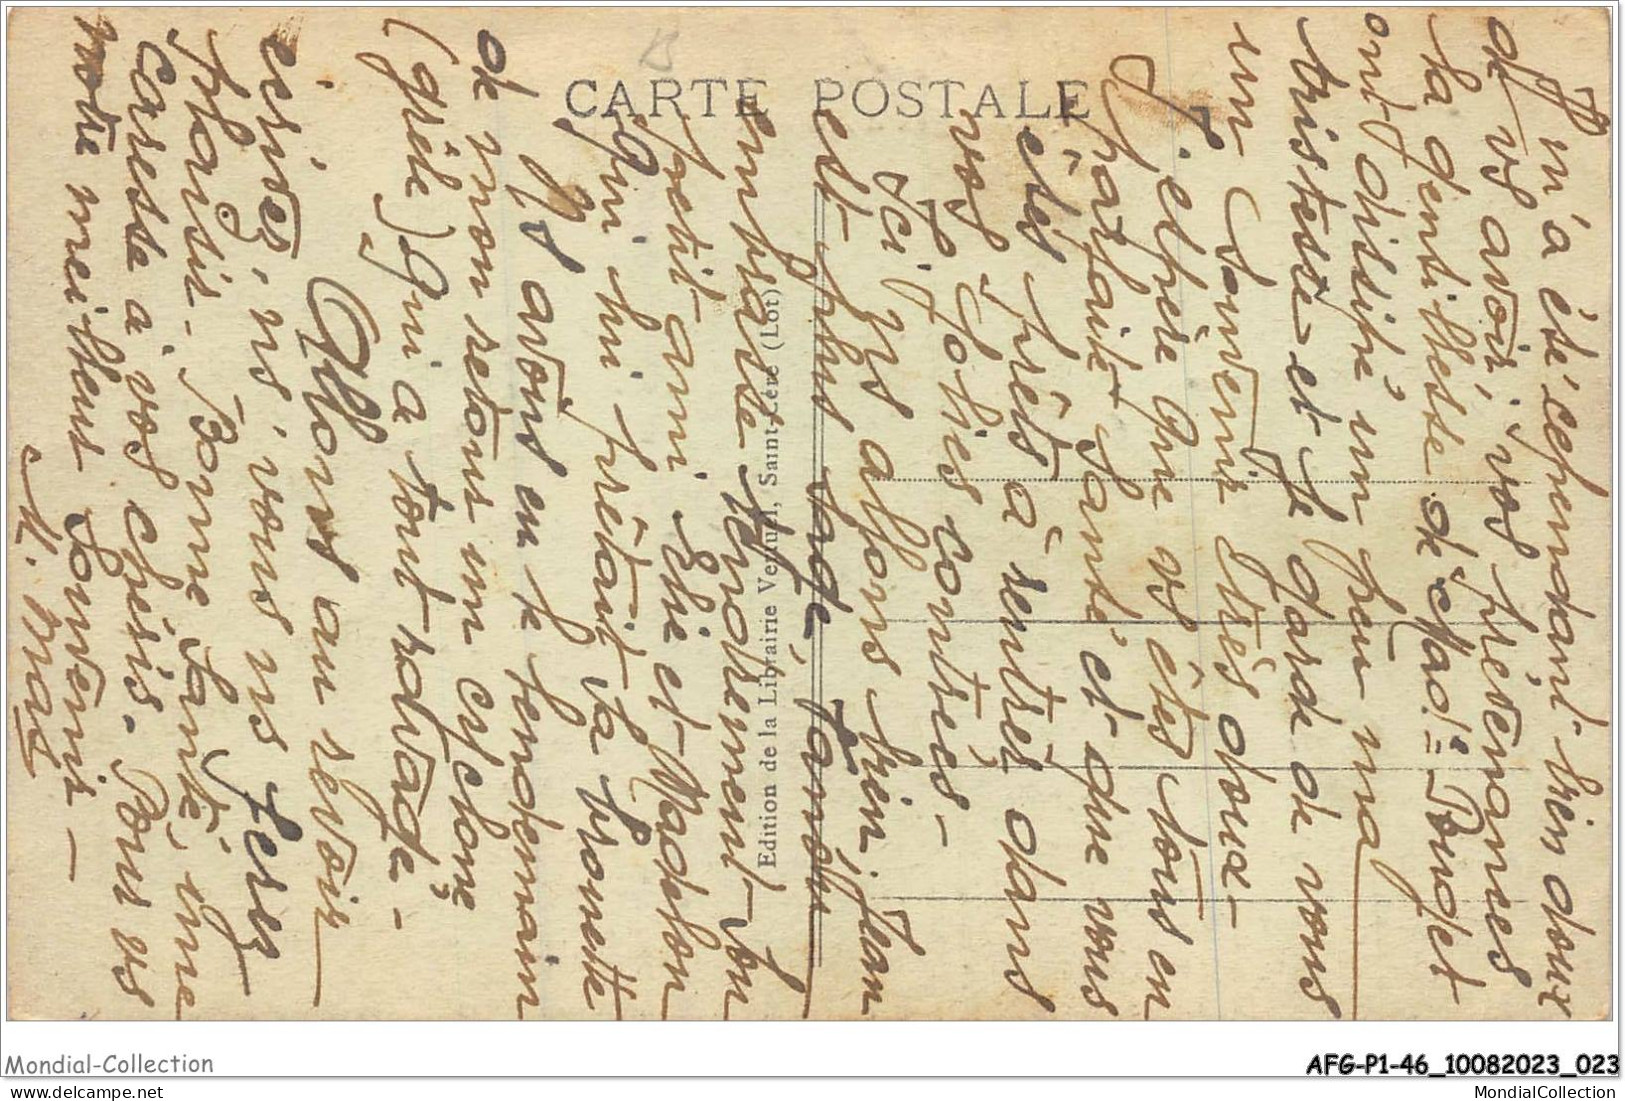 CARTE POSTALE
Edition de la Librairie Vertuel, Saint-Céré (Lot)
Il m'a été cependant bien doux
de vs avoir, vos prévenances
la gentillesse de Mad.le Pouget
ont dissipé un peu ma
tristesse et je garde de vous
un souvenir très doux -
J'espère que vs êtes tous en
parfaite santé et que vous
êtes prêts à rentrer dans
vos jolies contrées -
Ici ns allons bien, Jean
est plus sage, Tantôt
embrasse tendrement son
petit ami Elie et Madelon
qui lui prêtait sa brouette
Ns avons eu le lendemain
de mon retour un cyclone
(grêle) qui a tout ravagé -
Allons au revoir
écrivez, ns, vous ns ferez
plaisir. Bonne santé, une
caresse à vos chéris. Pour vs
notre meilleur souvenir -
M. Mas
Mondial-Collection
AFG-P1-46_10082023_023
MondialCollection